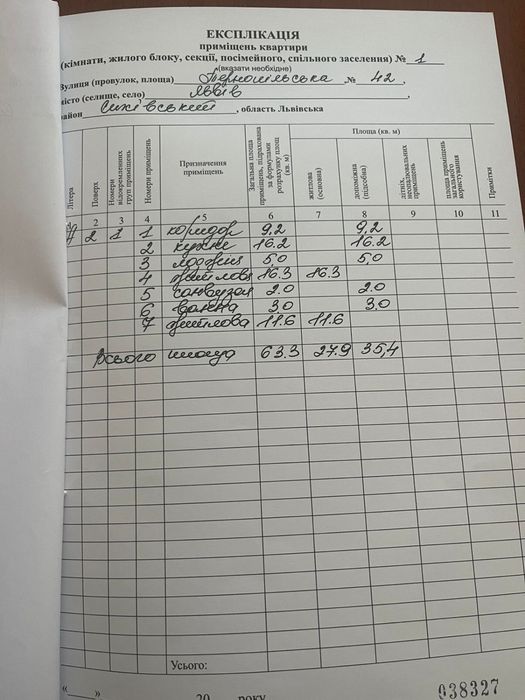 ЕКСПЛІКАЦІЯ
приміщень квартири
(кімнати, жилого блоку, секції, посімейного, спільного заселення) № 1
(вказати необхідне)
Вулиця (провулок, площа) Тернопільська, № 42,
місто (селище, село) Львів,
район Сихівський, область Львівська
Літера
Поверх
Номери відокремлених груп приміщень
Номери приміщень
Призначення приміщень
Загальна площа приміщень, підрахована за формулами розрахунку площ (кв. м)
Площа (кв. м)
житлова (основна)
допоміжна (підсобна)
літніх, неопалювальних приміщень
площа приміщень загального користування
Примітки
2 3 4 5 6 7 8 9 10 11
2 1 1 коридор 9,2 9,2
2 кухня 16.2 16.2
3 лоджия 5,0 5,0
4 житлова 16.3 16.3
5 санвузол 2.0 2.0
6 ванна 3,0 3,0
7 житлова 11.6 11.6
Всього площа 63.3 27.9 35,4
Усього:
"___" 20 року
038327